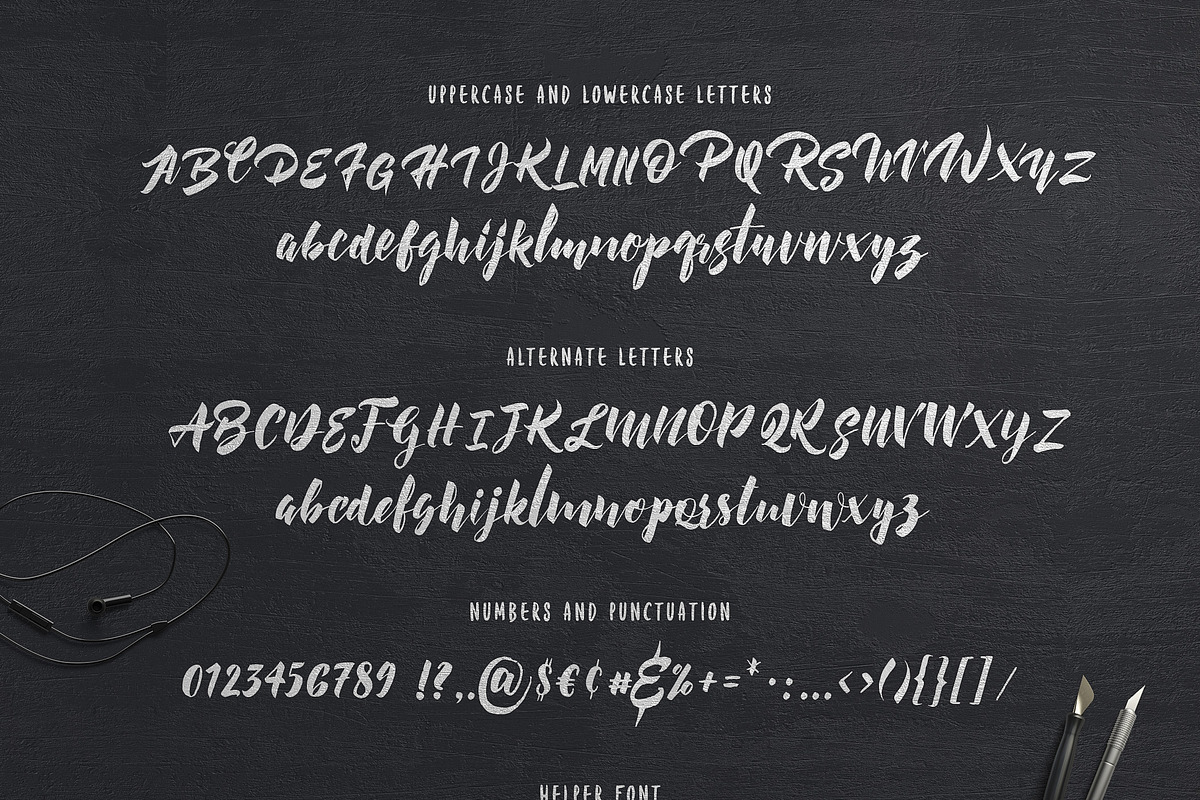 UPPERCASE AND LOWERCASE LETTERS
ABCDEFGHIJKLMNOPQRSUVWXYZ
abcdefghijklmnopqrstuvwxyz
ALTERNATE LETTERS
ABCDEFGHIJKLMNOPQRSUVWXYZ
abcdefghijklmnopqrstuvwxyz
NUMBERS AND PUNCTUATION
0123456789 !?,.@$€¢#&%+=*·:;...<>(){}[]/
HELPER FONT